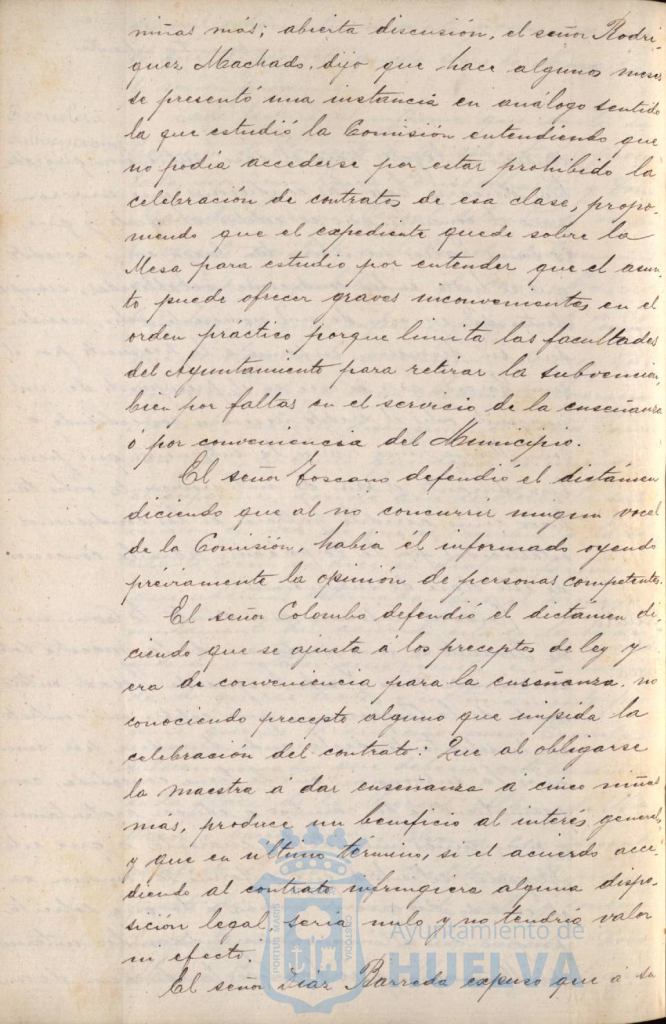 niñas más; abierta discusión, el señor Rodri-
guez Machado, dijo que hace algunos meses
se presentó una instancia en análogo sentido
la que estudió la Comisión entendiendo que
no podia accederse por estar prohibido la
celebración de contratos de esa clase, propo-
niendo que el expediente quede sobre la
Mesa para estudio por entender que el asun-
to puede ofrecer graves inconvenientes en el
orden práctico porque limita las facultades
del Ayuntamiento para retirar la subvencion
bien por faltas en el servicio de la enseñanza
ó por conveniencia del Municipio.
El señor Toscano defendió el dictámen
diciendo que al no concurrir ningun vocal
de la Comisión, habia él informado oyendo
préviamente la opinión de personas competentes.
El señor Colombo defendió el dictámen di-
ciendo que se ajusta á los preceptos de ley y
era de conveniencia para la enseñanza, no
conociendo precepto alguno que impida la
celebración del contrato: Que al obligarse
la maestra á dar enseñanza á cinco niñas
más, produce un beneficio al interés general
y que en último término, si el acuerdo acce-
diendo al contrato infringiera alguna dispo-
sición legal seria nulo y no tendria valor
ni efecto.
El señor Diaz Barreda expuso que á su
PORTUS MARIS
Ayuntamiento de
HUELVA